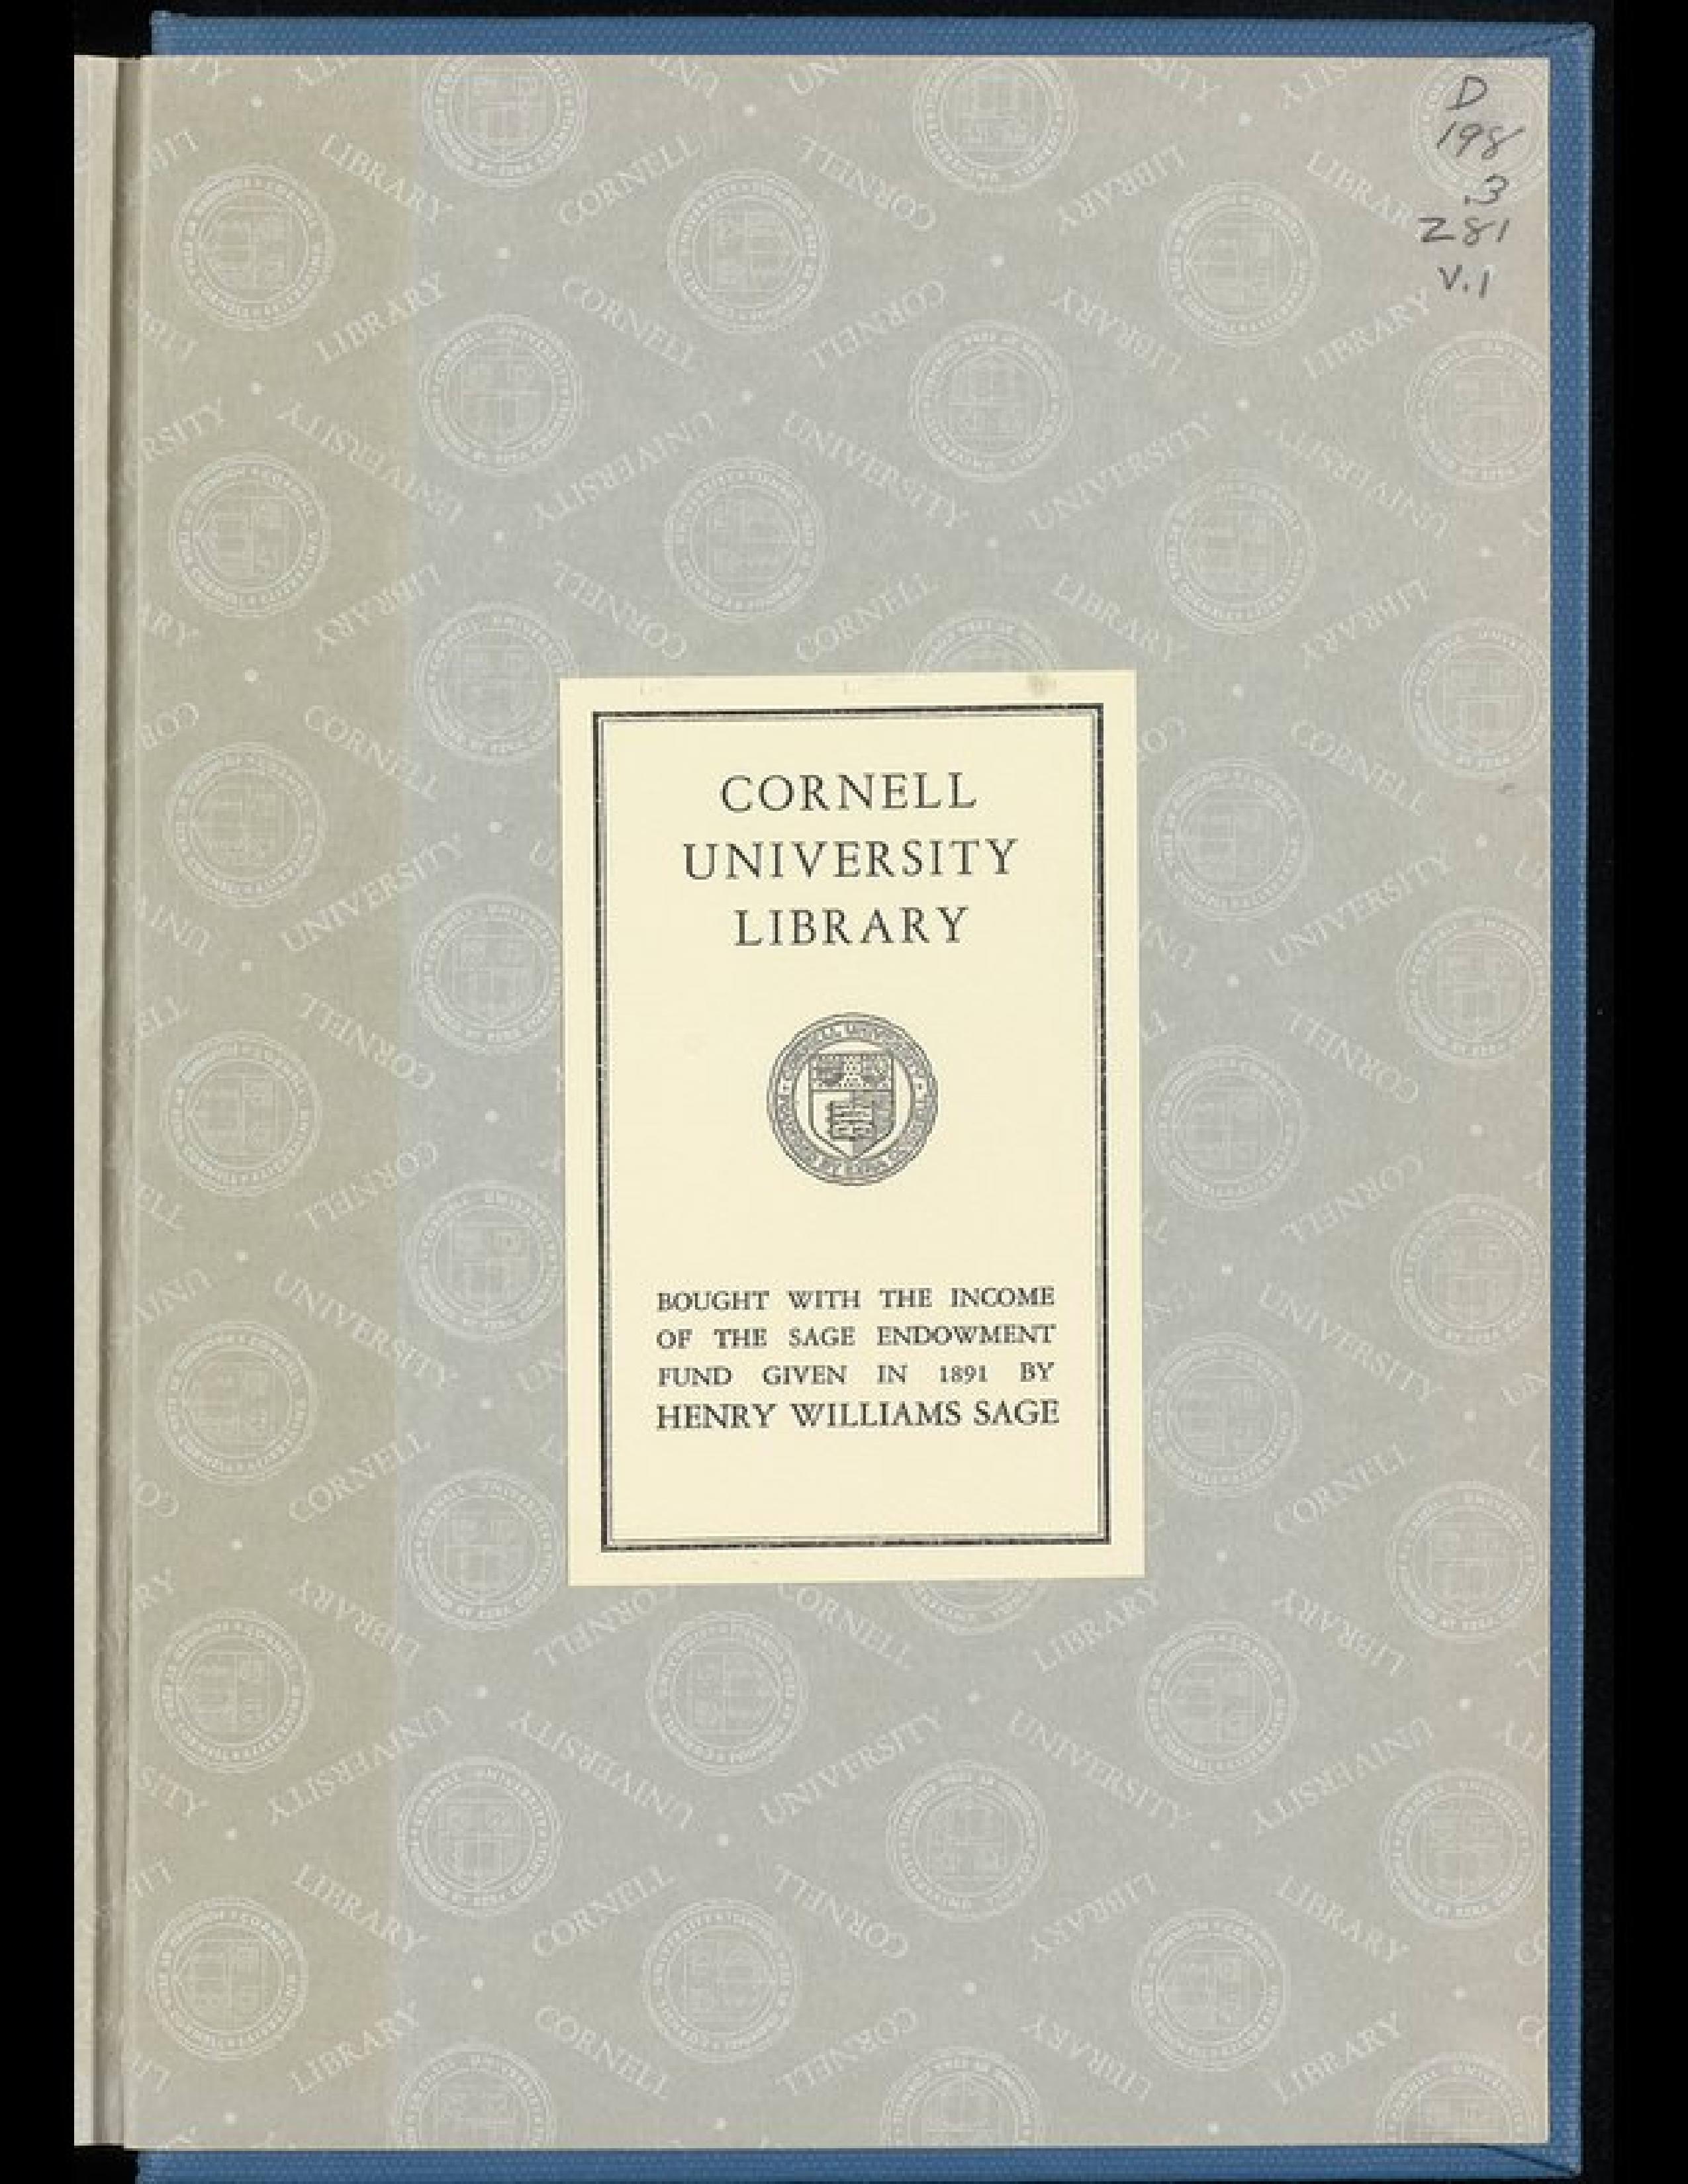 D
198
.3
Z81
V.1
CORNELL
UNIVERSITY
LIBRARY
BOUGHT WITH THE INCOME
OF THE SAGE ENDOWMENT
FUND GIVEN IN 1891 BY
HENRY WILLIAMS SAGE